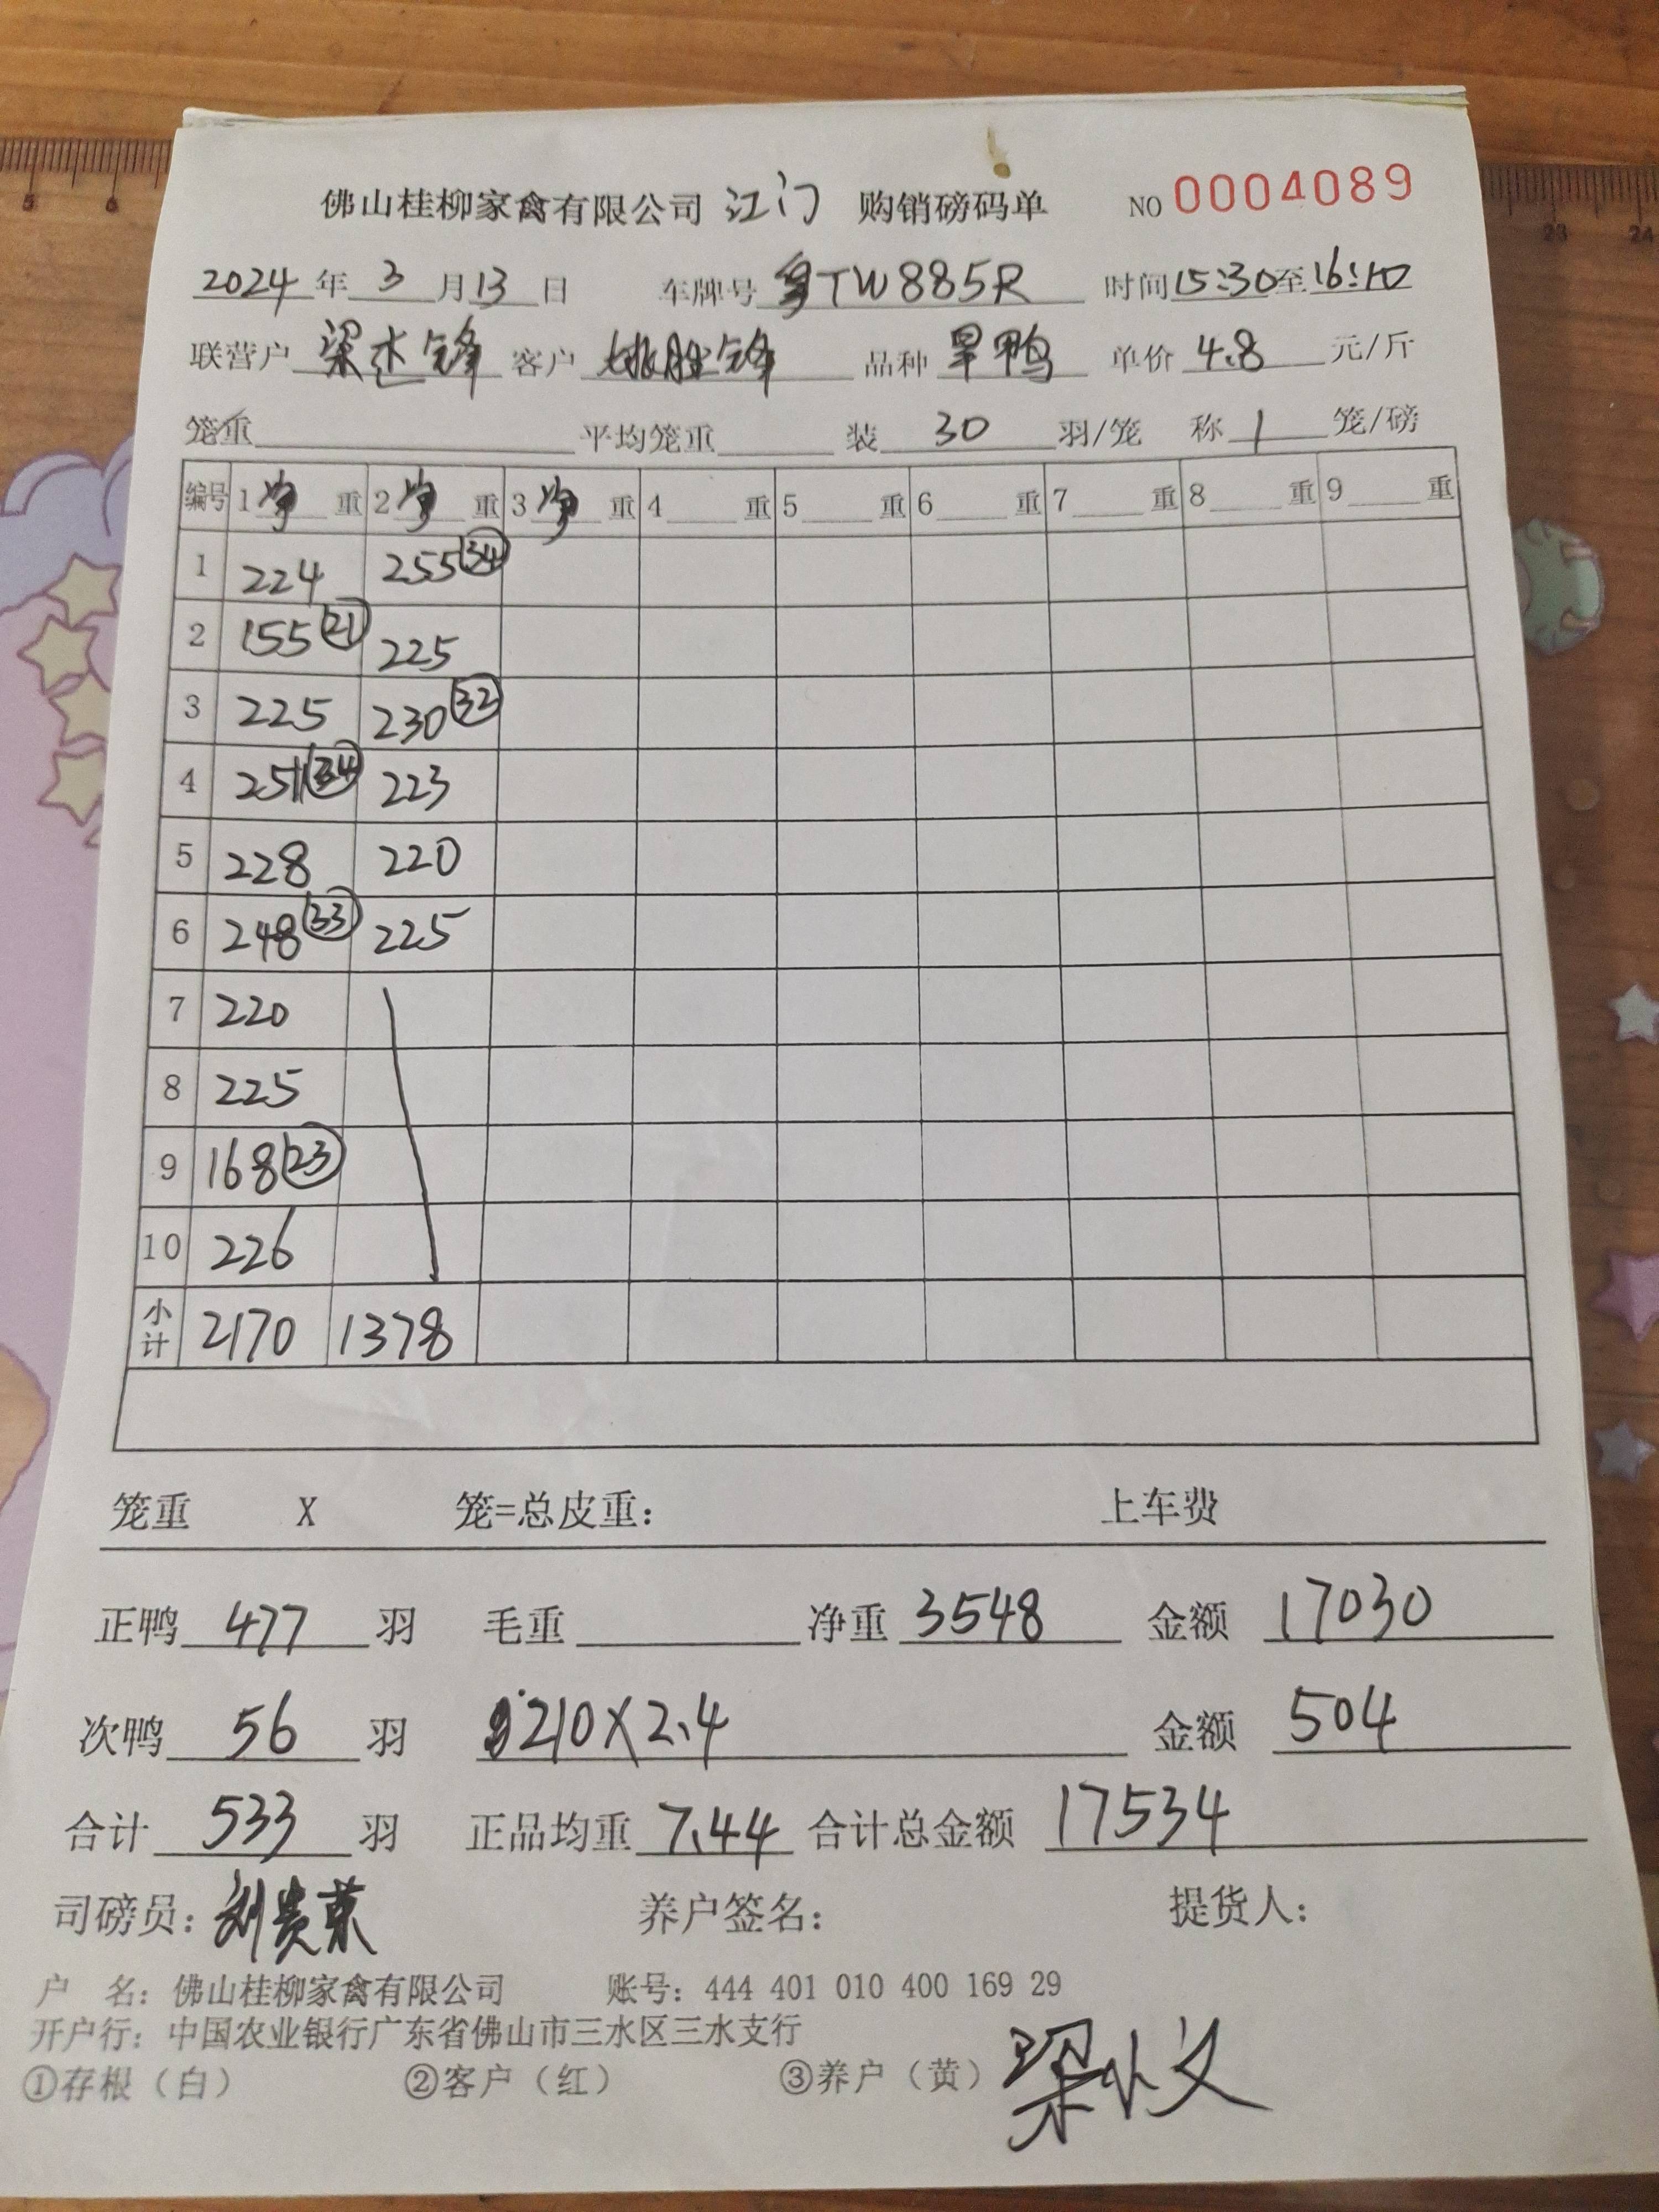 佛山桂柳家禽有限公司 江门 购销磅码单 NO 0004089
2024 年 3 月 13 日 车牌号 粤TW885R 时间 15:30 至 16:10
联营户 梁志锋 客户 姚胜锋 品种 旱鸭 单价 4.8 元/斤
笼重 平均笼重 装 30 羽/笼 称 1 笼/磅
编号 1 净 重 2 净 重 3 净 重 4 重 5 重 6 重 7 重 8 重 9 重
1 224 255 (34)
2 155 (21) 225
3 225 230 (32)
4 251 (34) 223
5 228 220
6 248 (33) 225
7 220
8 225
9 168 (23)
10 226
小计 2170 1378
笼重 X 笼=总皮重: 上车费
正鸭 477 羽 毛重 净重 3548 金额 17030
次鸭 56 羽 210X2.4 金额 504
合计 533 羽 正品均重 7.44 合计总金额 17534
司磅员: 刘贵荣 养户签名: 提货人:
户 名: 佛山桂柳家禽有限公司 账号: 444 401 010 400 169 29
开户行: 中国农业银行广东省佛山市三水区三水支行
①存根（白） ②客户（红） ③养户（黄） 梁小义
5 6 23 24